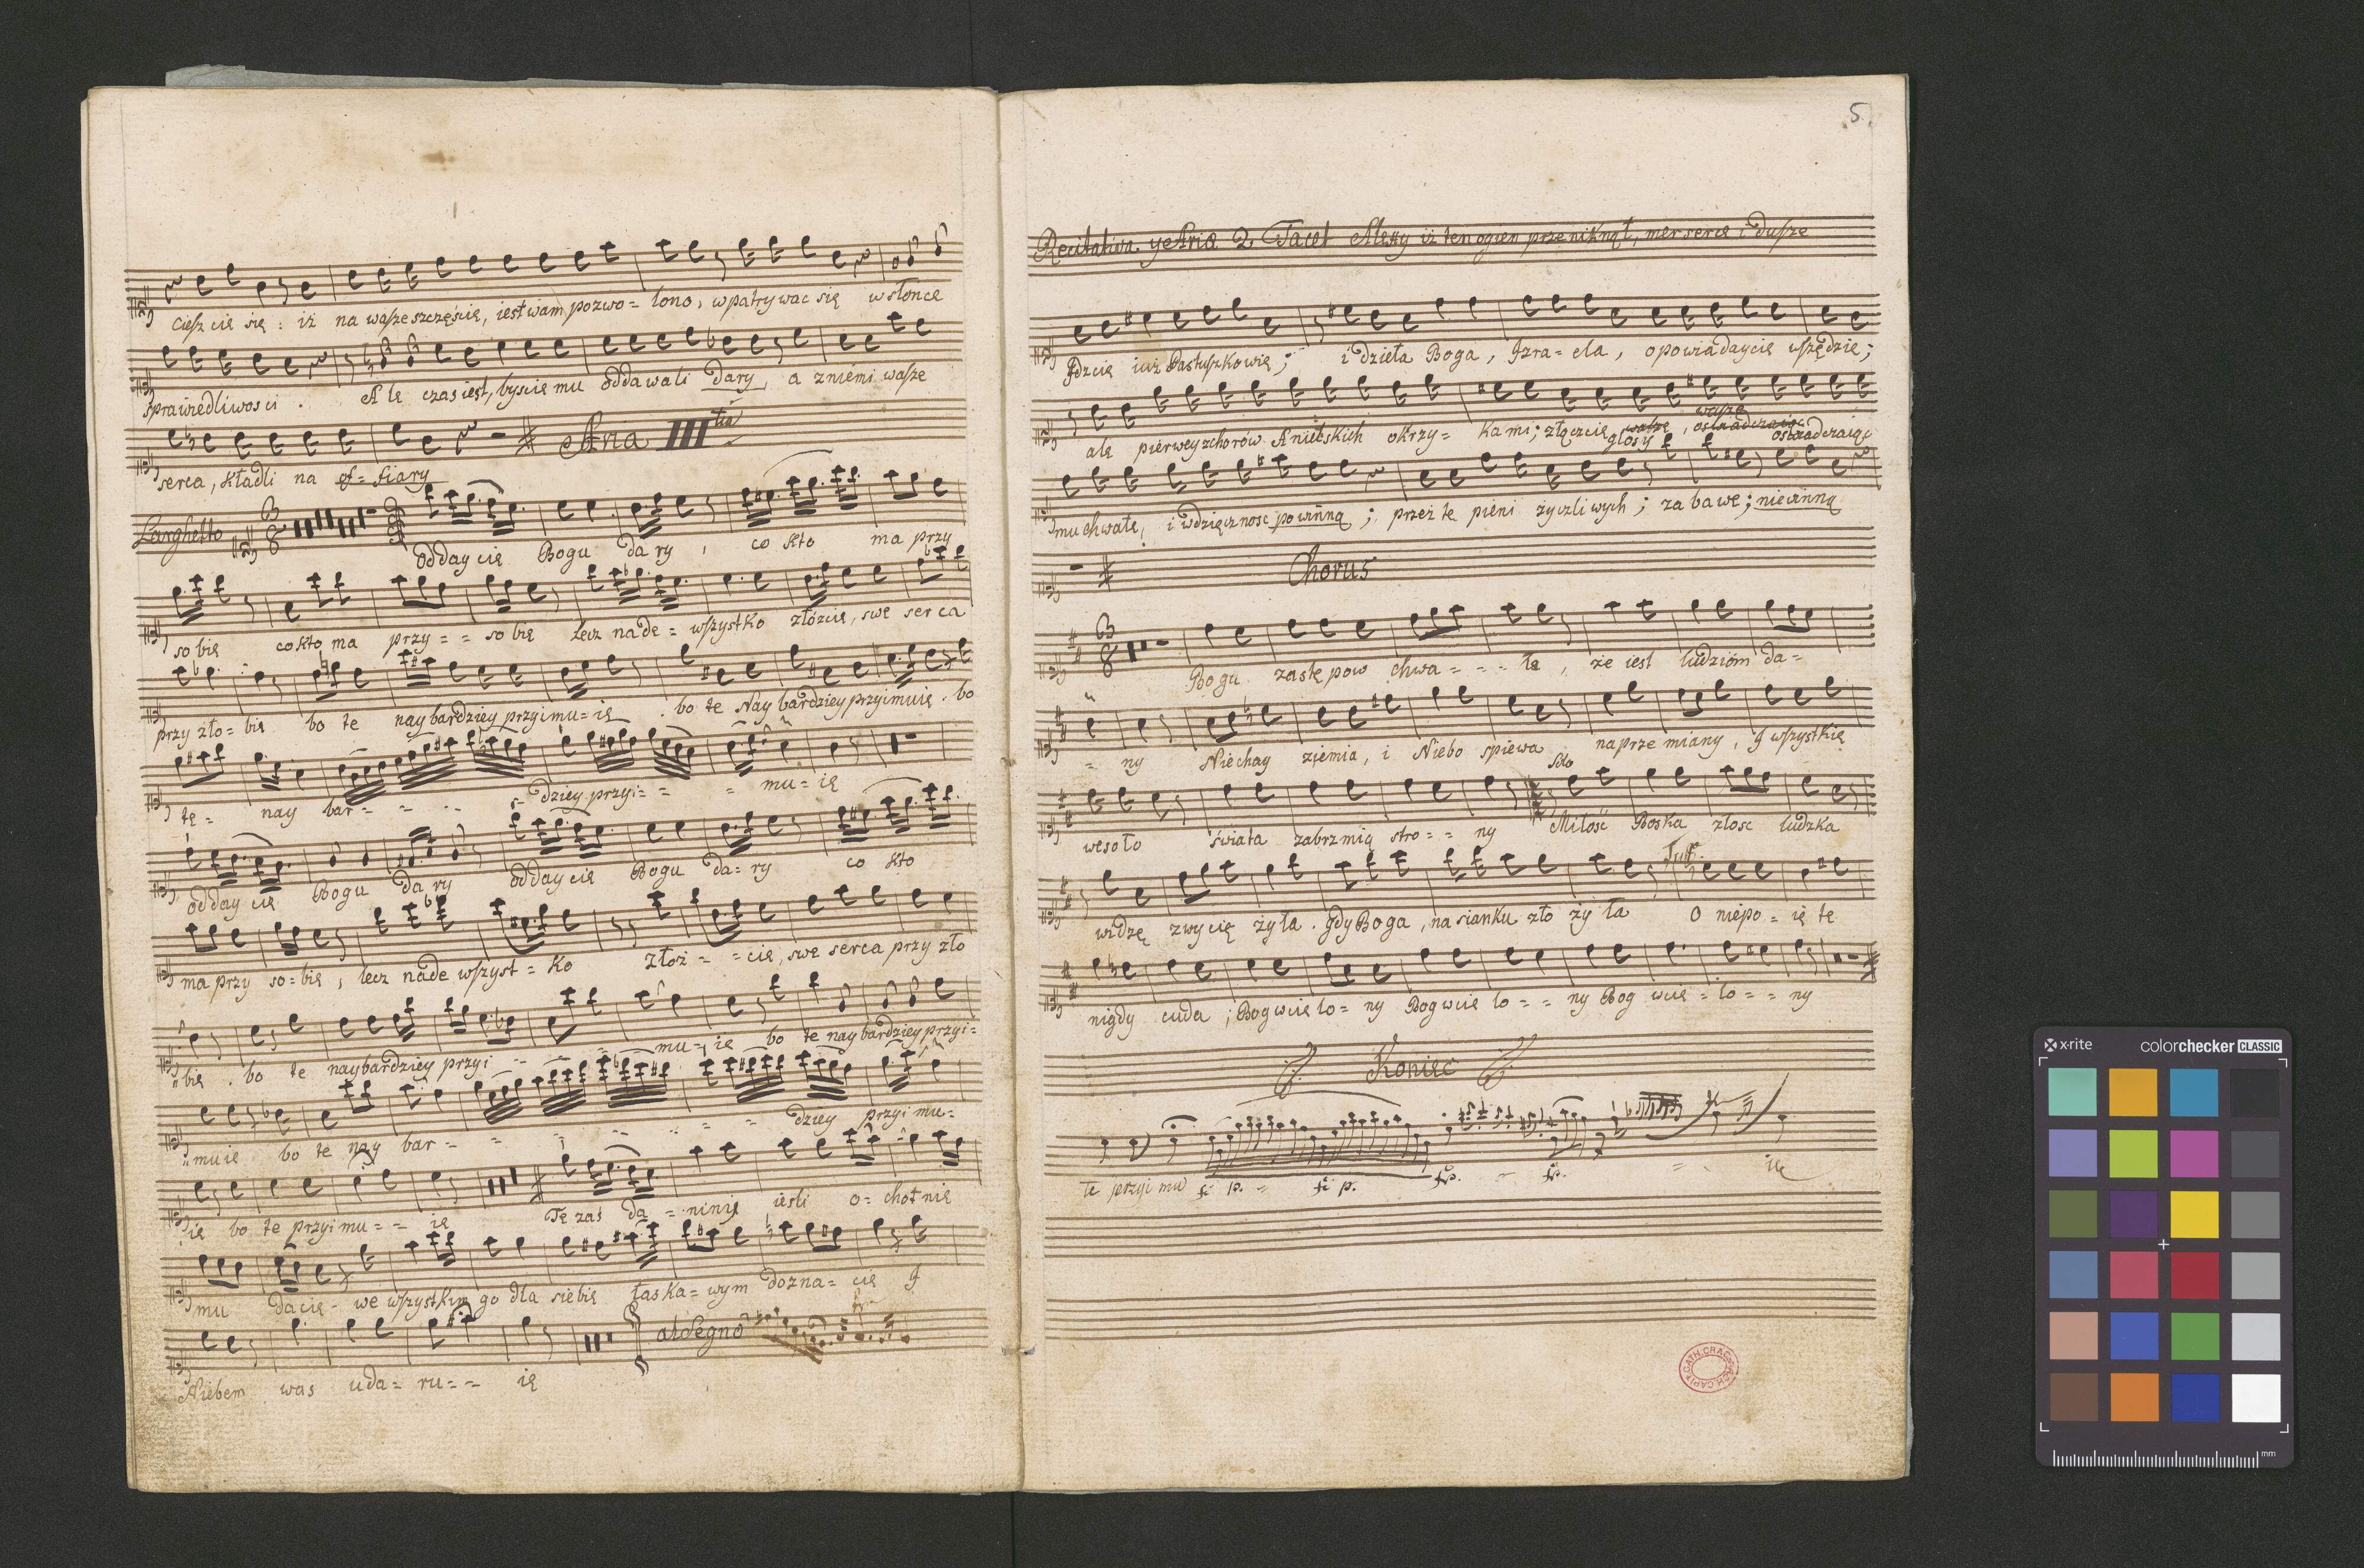 cieszcie się : iż na wasze szczęście, iest wam pozwo= lono, wpatrywac się w słonce
sprawiedliwosci . Ale czas iest, byscie mu oddawali dary, a z niemi wasze
Aria III tia
serca, kładli na of= fiary
Larghetto
oddaycie Bogu dary, co kto ma przy
sobie co kto ma przy= = sobie lecz nade= wszystko złózcie, swe serca
przy zło= bie bo te naybardziey przyimu= ie . bo te Naybardziey przyimuie . bo
te= nay bar= - - = dziey przyi= = = mu= ie
oddaycie Bogu dary oddaycie Bogu da= ry co kto
ma przy so= bie, lecz nade wszyst= ko złoż= = cie, swe serca przy zło
= bie . bo te naybardziey przyi - - - mu= ie bo te naybardziey przyi=
= muie bo te nay bar= = = - - = = dziey przyi mu=
ie bo te przyimu= = ie Tę zas da= ninie iesli o= chotnie
mu dacie - we wszystkim go dla siebie łaska= wym dozna= cie I
al Segno
Niebem was uda= ru= = ie
5.
Recitativa y Aria 2. Tacet iż ten ogien przeniknął, serce i dusze
Idzcie iuż Pastuszkowie ; i dzieła Boga, Izra= ela, opowiadaycie wszędzie ;
wasze
ale pierwey z chorów Anielskich okrzy= kami ; złączcie wasze , ostiadczaiąc
głosy
mu chwałę, i wdzięcznosc powinną ; przez te pieni życzliwych ; zabawe ; niewinną
Chorus
Bogu zastępow chwa= - - ła , że iest ludziom da=
= ny Niechay ziemia, i Niebo spiewa na przemiany, I wszystkie
Solo
wesoło świata zabrzmią stro= = ny Miłość Boska złosc ludzka
Tutti
widzę zwycię żyła . gdy Boga, na sianku zło żyła O niepo= ięte
nigdy cuda ; Bog wcielo= ny Bog wcie lo= = ny Bog wcie= lo= = ny
Koniec
te przyi mu fi p. = fi p. fp. - fp. = - ie
CATH. CRAC.
x-rite colorchecker CLASSIC
mm